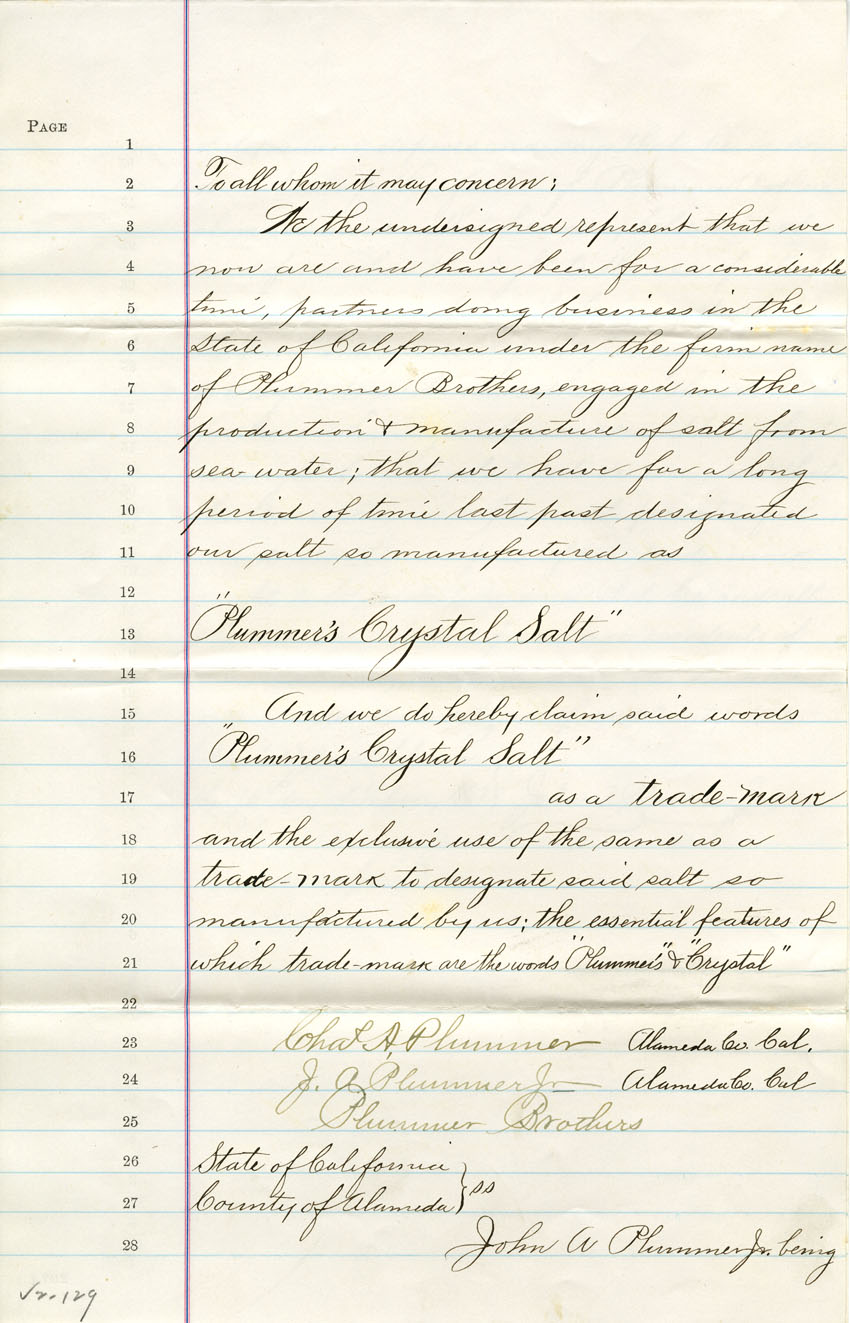 PAGE
1
2 To all whom it may concern;
3 We the undersigned represent that we
4 now are and have been for a considerable
5 time, partners doing business in the
6 State of California under the firm name
7 of Plummer Brothers, engaged in the
8 production & manufacture of salt from
9 sea-water; that we have for a long
10 period of time last past designated
11 our salt so manufactured as
12
13 "Plummer's Crystal Salt"
14
15 And we do hereby claim said words
16 "Plummer's Crystal Salt"
17 as a trade-mark
18 and the exclusive use of the same as a
19 trade-mark to designate said salt so
20 manufactured by us; the essential features of
21 which trade-mark are the words "Plummer's" & "Crystal"
22
23 Chas A, Plummer Alameda Co. Cal.
24 J. A Plummer Jr Alameda Co. Cal
25 Plummer Brothers
26 State of California
27 County of Alameda } ss
28 John A Plummer Jr. being
V2-129